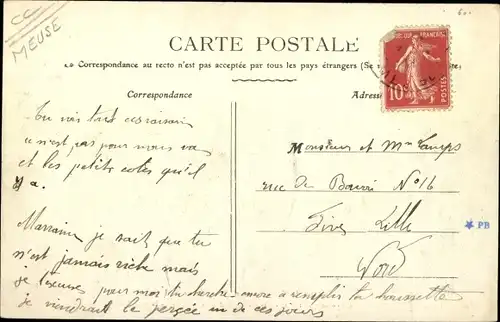 CC
MEUSE
CARTE POSTALE
Correspondance au recto n'est pas acceptée par tous les pays étrangers (Se
Correspondance
Adresse
10
POSTES
Tu vois tant
ce n'est pas pour nous
et les petits cotes qu'il
y a.
Marraine je sait que tu
n'est jamais riche mais
je pour moi tu cherche encore a remplir ta
je viendrait le un de ces jours
Monsieur et Mme Camps
rue du N° 16
Fives Lille
Nord
PB